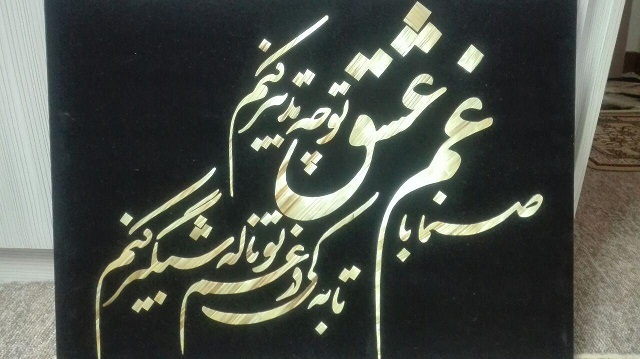 صنما با غم عشق تو چه تدبیر کنم
تا به کی در غم تو ناله شبگیر کنم